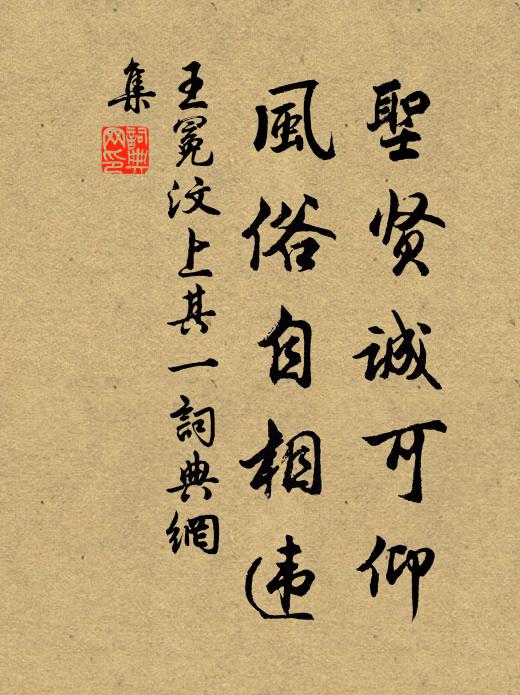 聖贤誠可仰
風俗自相违
王冕汶上其一詞典網
集
詞典网印